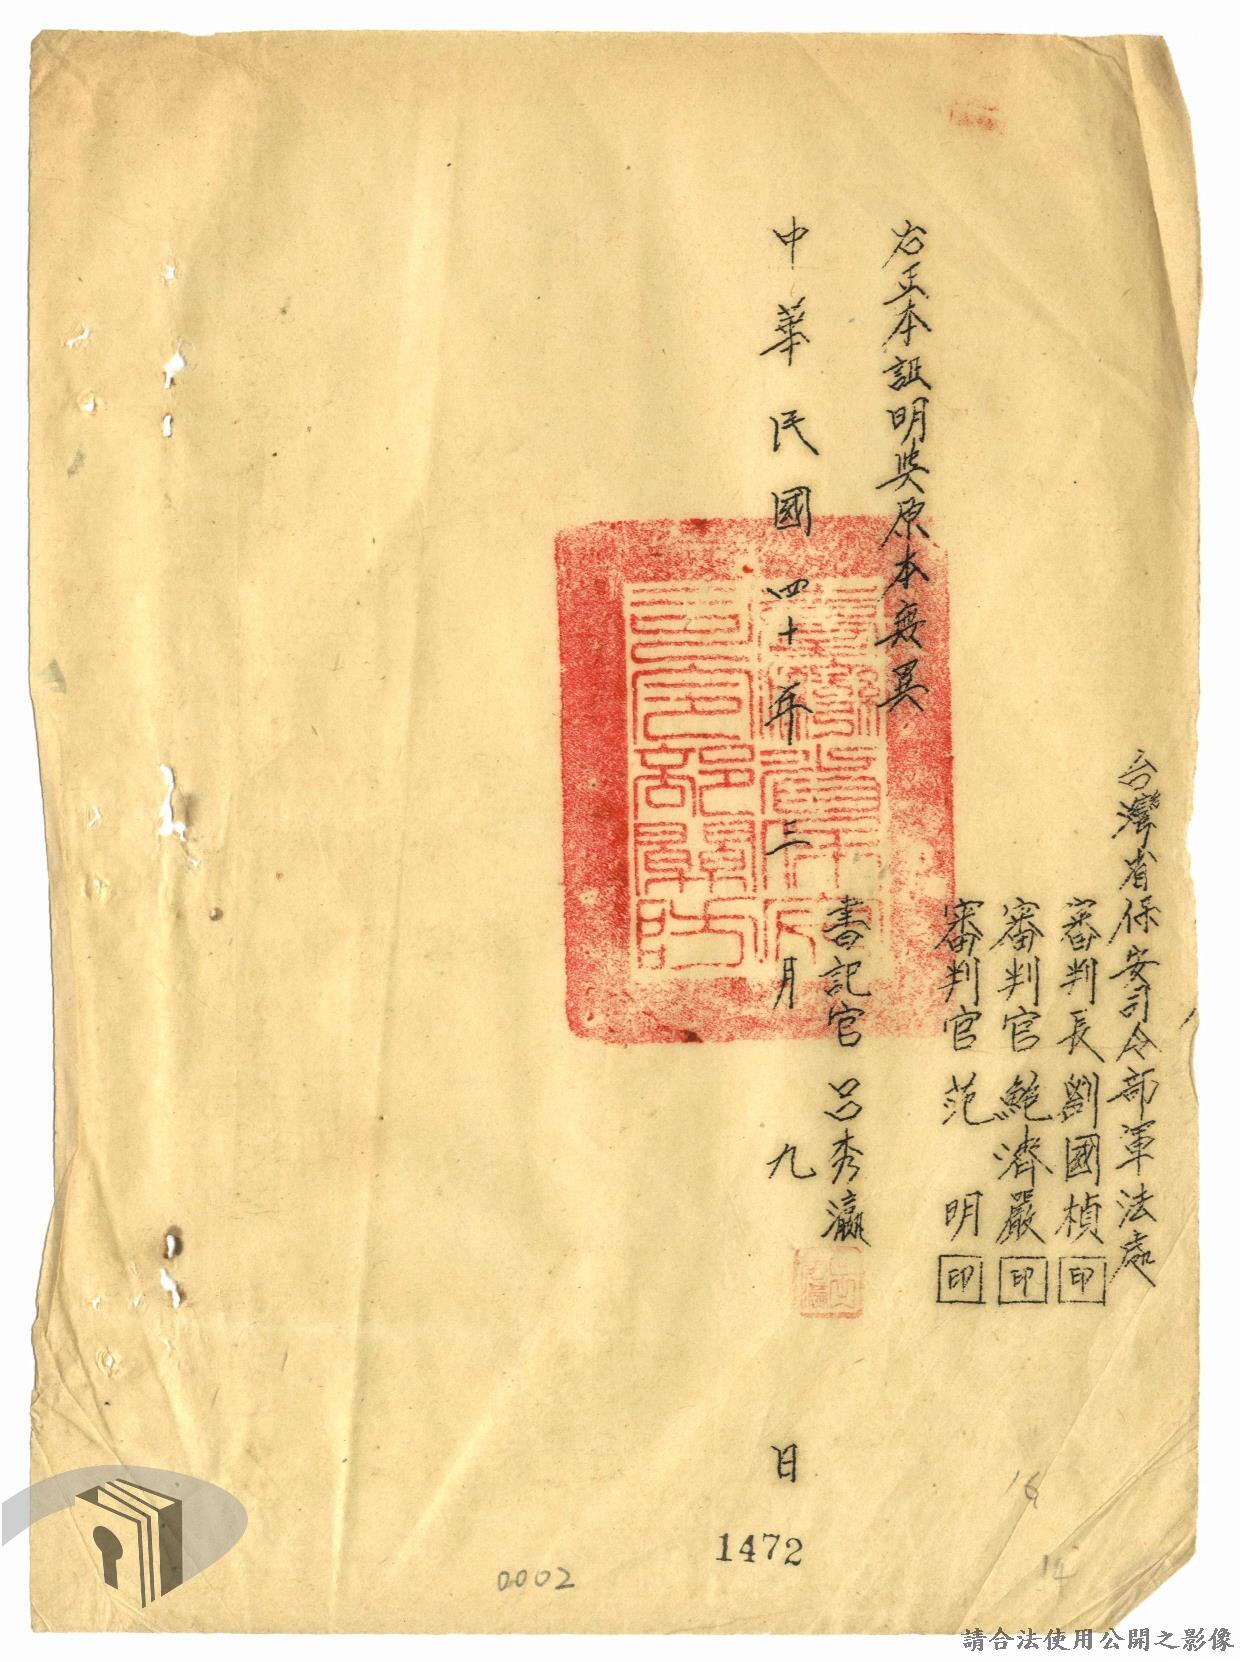 台灣省保安司令部軍法處
審判長 劉國楨 印
審判官 鮑濟嚴 印
審判官 范明 印
右正本証明與原本無異
書記官 呂秀瀛
中華民國四十年三月九日
1472
0002
16
14
請合法使用公開之影像